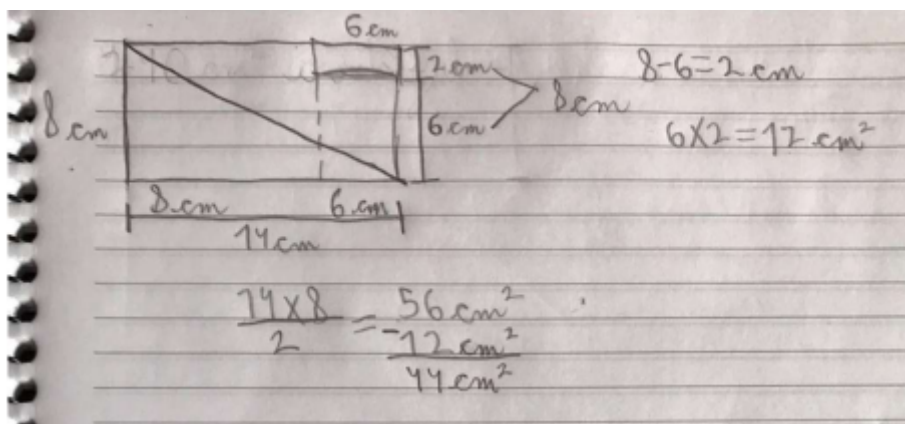 6 cm
2 cm
8 cm
6 cm
8 cm
8 cm
6 cm
14 cm
8-6=2 cm
6×2=12 cm²
14×8
2
= 56 cm²
-12 cm²
44 cm²